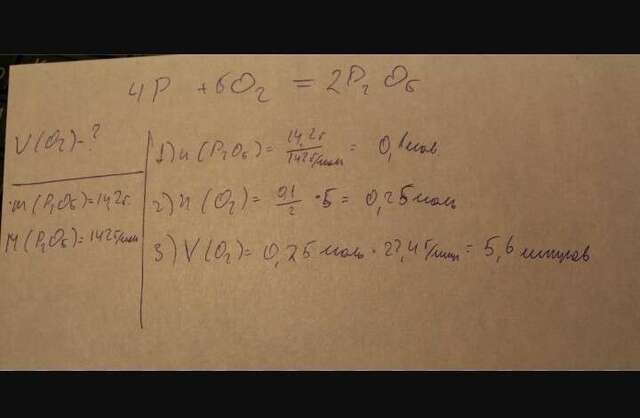 4P + 5O₂ = 2P₂O₅
V(O₂)-?
m(P₂O₅)=14,2г.
M(P₂O₅)=142г/моль
1) n(P₂O₅) = 14,2г/142г/моль = 0,1моль.
2) n(O₂) = 0,1/2 · 5 = 0,25моль
3) V(O₂) = 0,25 моль · 22,4г/моль = 5,6 литров